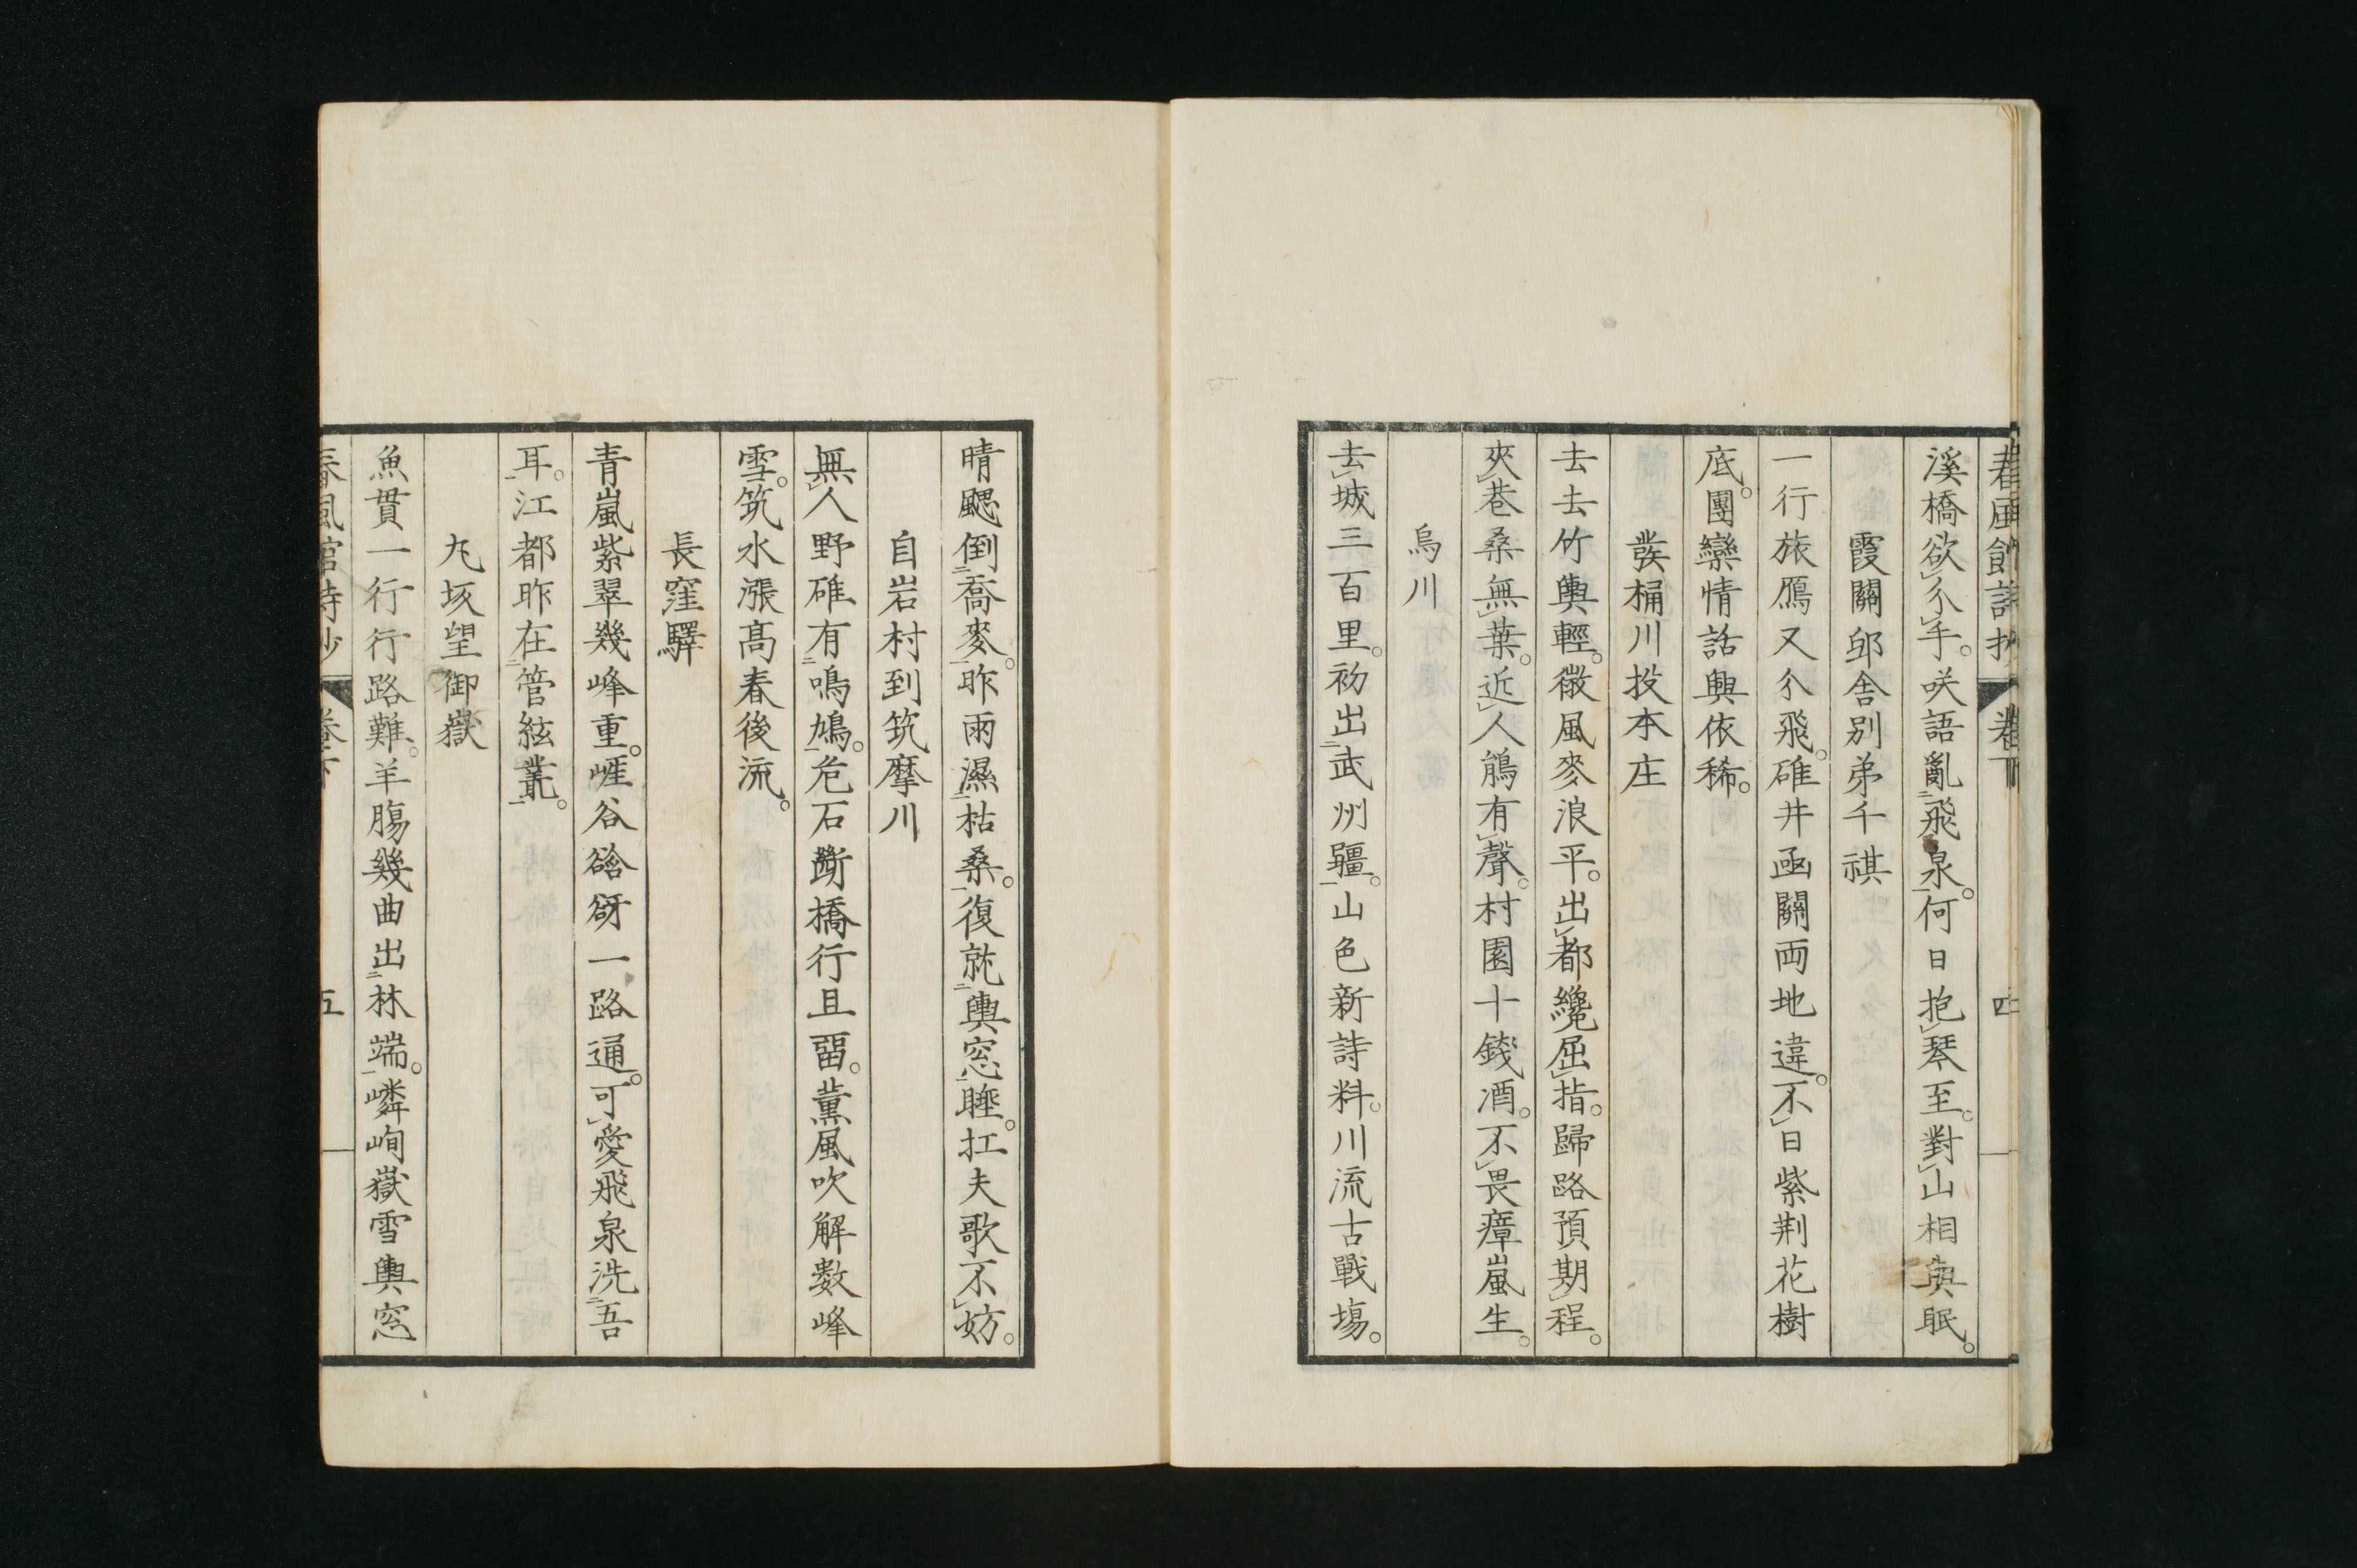 春風館詩抄 卷下 四
溪橋欲分手。咲語亂飛泉。何日抱琴至。對山相與眠。
霞關邸舍別弟千祺
一行旅鴈又分飛。碓井函關両地違。不日紫荆花樹
底。團欒情話興依稀。
發桶川投本庄
去去竹輿輕。微風麥浪平。出都纔屈指。歸路預期程。
夾巷桑無葉。近人鵑有聲。村園十錢酒。不畏瘴嵐生。
烏川
去城三百里。初出武州疆。山色新詩料。川流古戰場。
晴颸倒喬麥。昨雨濕枯桑。復就輿窓睡。扛夫歌不妨。
自岩村到筑摩川
無人野碓有鳴鳩。危石斷橋行且畱。薰風吹解數峰
雪。筑水漲高春後流。
長窪驛
青嵐紫翠幾峰重。崕谷谽谺一路通。可愛飛泉洗吾
耳。江都昨在管絃叢。
九坂望御嶽
魚貫一行行路難。羊膓幾曲出林端。嶙峋嶽雪輿窓
春風館詩抄 卷下 五